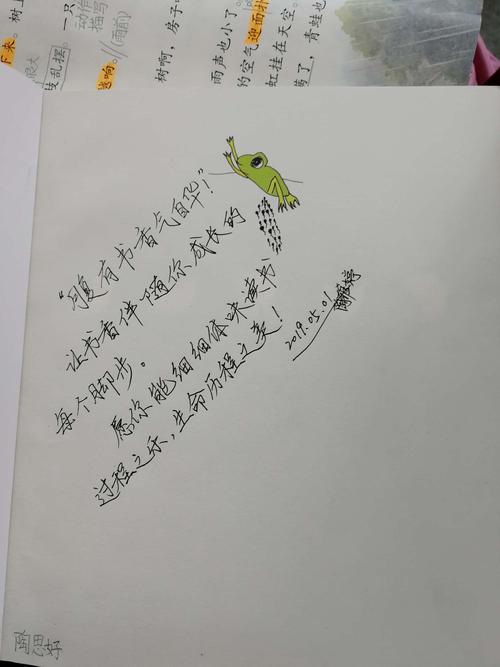 "腹有书香气自华!"
让书香伴随你成长的
每个脚步。
愿你能细细体味读书
过程之乐,生命历程之美!
2019.05.01
下来。树上
一只
动作
描写
(雨前)
响。
树啊,房子
雨声也小了。
的空气迎面扑
虹挂在天空。
了,青蛙也
很大
乱摆。